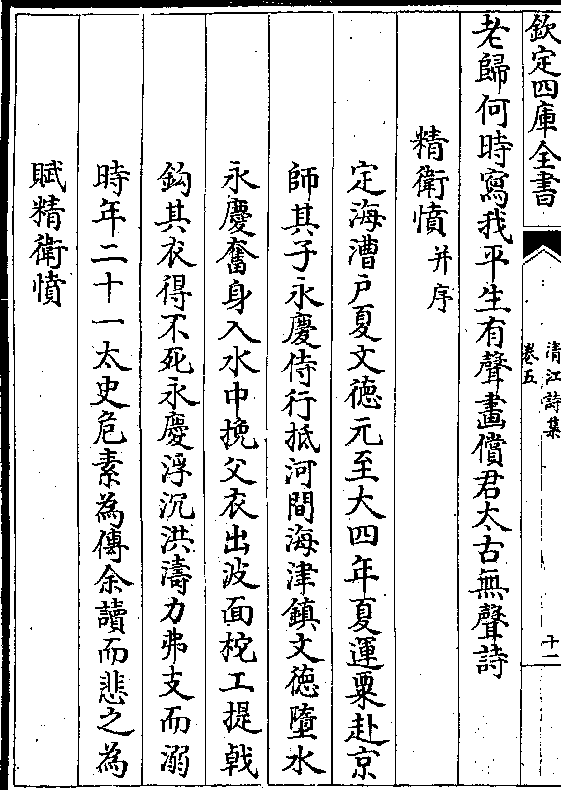 欽定四庫全書
清江詩集
卷五
十二
老歸何時寫我平生有聲畫償君太古無聲詩
精衛憤并序
定海漕戶夏文德元至大四年夏運粟赴京
師其子永慶侍行抵河間海津鎮文德墮水
永慶奮身入水中挽父衣出波面柁工提戟
鈎其衣得不死永慶浮沉洪濤力弗支而溺
時年二十一太史危素為傳余讀而悲之為
賦精衛憤